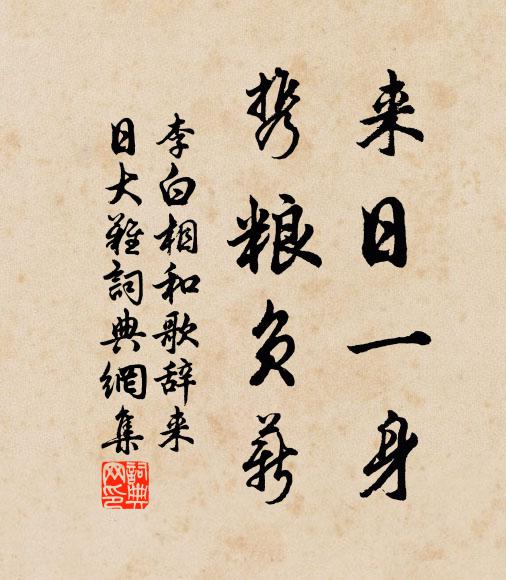 来日一身
携粮负薪
李白相和歌辞来
日大難詞典網集
詞典
网印